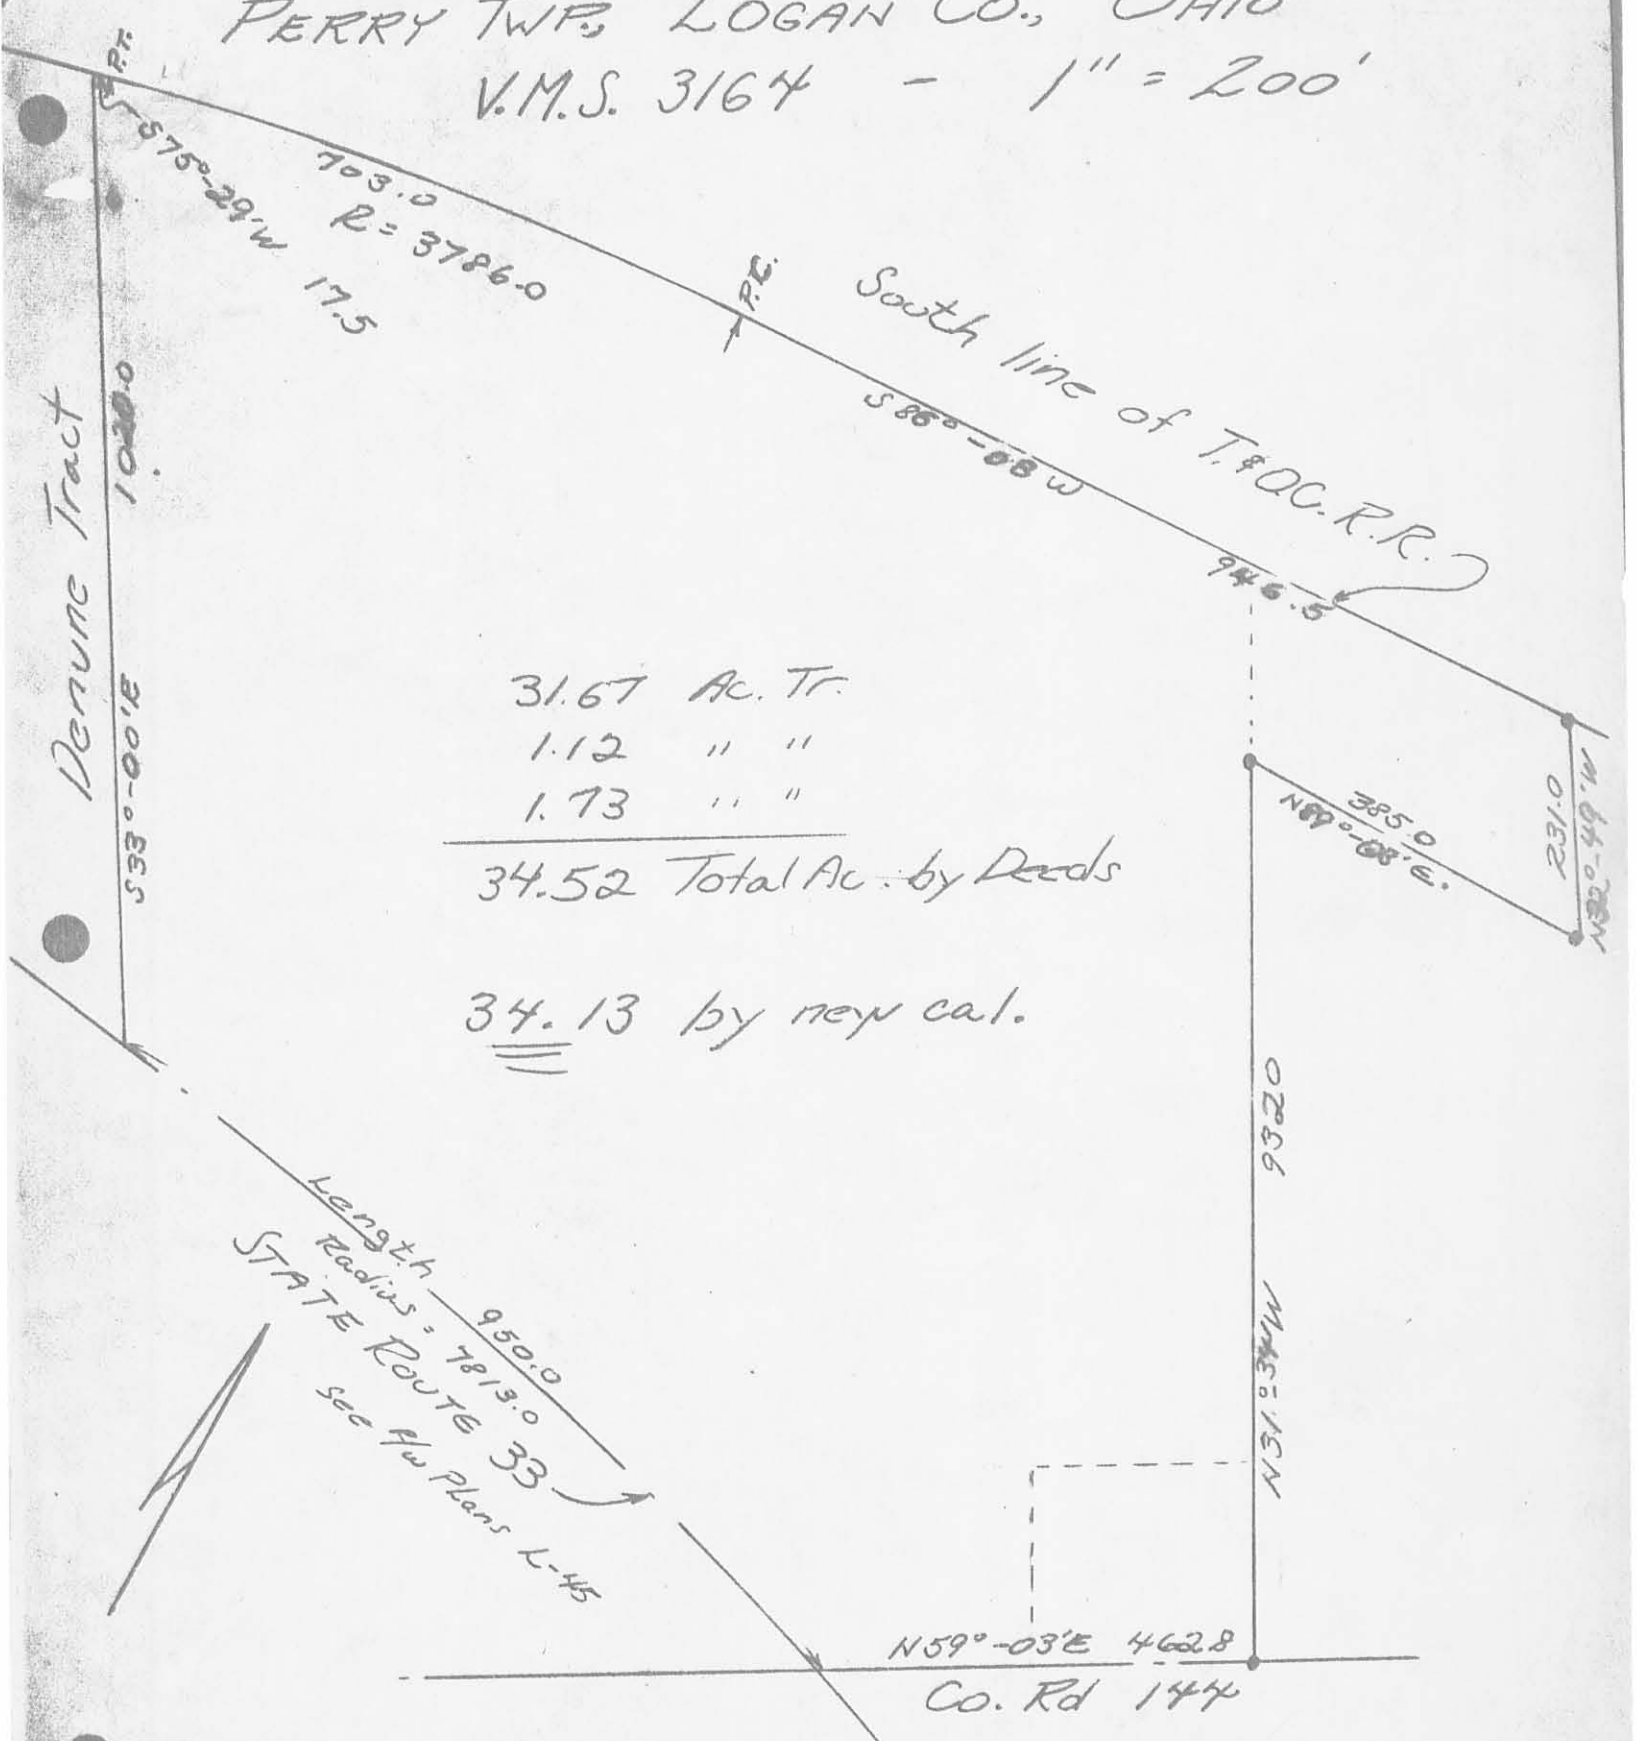 PERRY TWP., LOGAN CO., OHIO
V.M.S. 3164 - 1" = 200'
P.T.
S75°-29'W 17.5
703.0
R = 3786.0
P.C.
South line of T. & O.C. R.R.
S 86°-08 W
946.5
Denune Tract
1020.0
S33°-00'E
31.67 Ac. Tr.
1.12 " "
1.73 " "
34.52 Total Ac. by Deeds
34.13 by new cal.
385.0
N89°-03'E.
231.0
N32°-49'W
932.0
N31°-34'W
Length 950.0
Radius = 7813.0
STATE ROUTE 33
see R/W Plans L-45
N59°-03'E 462.8
Co. Rd 144